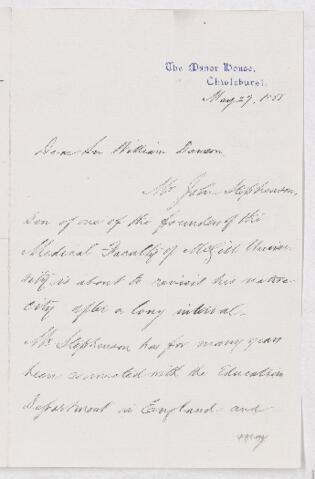 The Manor House,
Chislehurst.
May 27, 1888
Dear Sir William Dawson
Mr John Stephenson,
son of one of the founders of the
Medical Faculty of McGill Univer
sity is about to revisit his native
city after a long interval.
Mr Stephenson has for many years
been connected with the Education
Department in England and
may